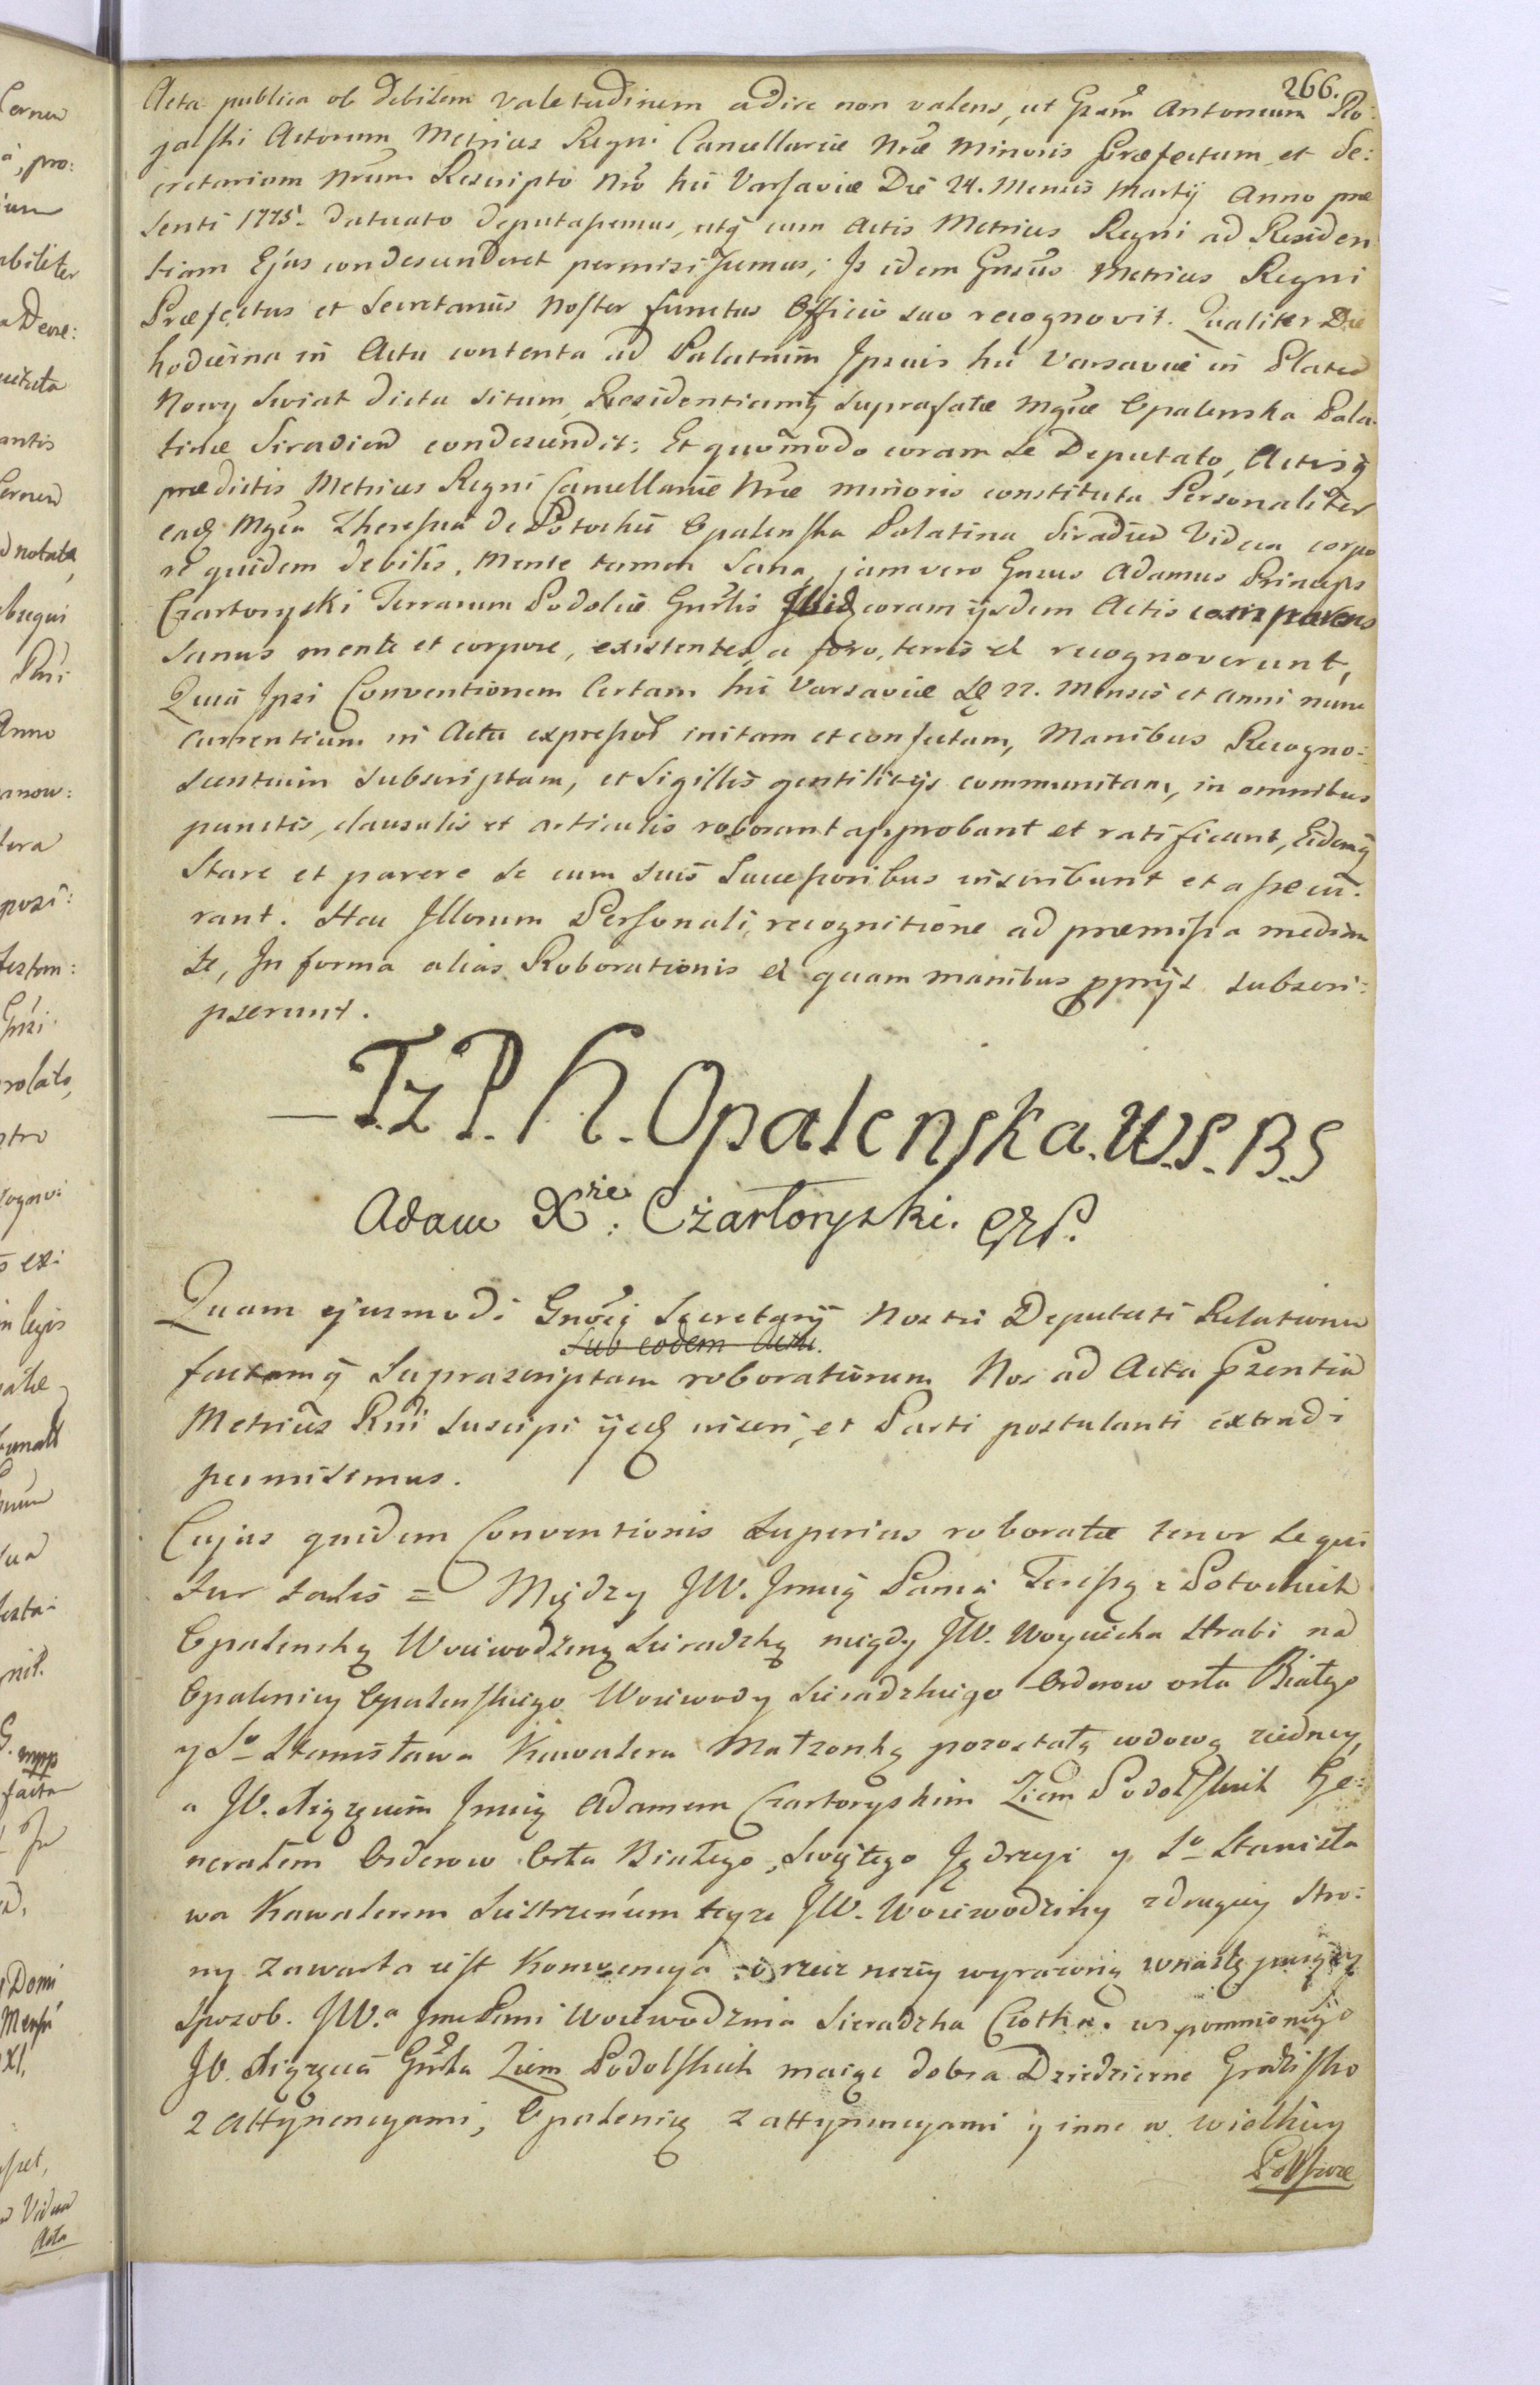 266.
Acta publica ob debilem valetudinem adire non valens, ut Gram Antonium Ro:
jalski Actorum Metrices Regni Cancellariæ Nræ Minoris Præfectum, et Se:
cretarium Nrum Rescripto Nro hic Varsaviæ Die 24. Mensis Martij Anno præ
senti 1775. datuato deputassemus, utq cum Actis Metrices Regni ad Residen
tiam Ejus condescenderet permisissemus; Is idem Gnsus Metrices Regni
Præfectus et Secretarius Noster functus Officio suo recognovit. Qualiter Die
hodierna in Actu contenta ad Palatium Ipsius hic Varsaviæ in Platea
Nowy Swiat dicta situm, Residentiamq suprafatæ Mgcæ Opalenska Pala
tinæ Siradien condescendit; Et quomodo coram se Deputato, Actisq
prædictis Metrices Regni Cancellariæ Nræ minoris constituta Personaliter
eadq Mgca Theressia de Potockie Opalenska Palatina Siradien Vidua corpo
re quidem debilis, Mente tamen Sana, jam vero Gnsus Adamus Princeps
Czartoryski Terrarum Podoliæ Gnrlis Ibidq coram ijsdem Actis comparens
Sanus mente et corpore, existentes, a foro, terris et recognoverunt,
Quia Ipsi Conventionem Certam hic Varsaviæ De 22. Mensis et anni nunc
currentium in Actu expressor initam et confectam, Manibus Recogno:
scentium subscriptam, et Sigillis gentilitijs communitam, in omnibus
punctis, clausulis et articulis roborant approbant et ratificant, Eidemq
Stare et parere se cum suis Successoribus inscribunt et assecu:
rant. Hac Illorum Personali recognitione ad præmissa median
te, In forma alias Roborationis et quam manibus pprijs subscri:
pserunt.
T.z P. H. Opalenska. W.S. B.S
Adam Xże: Czartoryski. GZP.
Quam ejusmodi Gnosi Secretarij Nostri Deputati Relationem
Sub eodem Actu.
factamq Suprascriptam roborationem Nos ad Acta Przentia
Metrices Rni suscipi ijsdq inseri, et Parti postulanti extradi
permisimus.
Cujus quidem Conventionis Superius roboratæ tenor sequi
tur talis = Między JW. Jmcią Panią Teressą z Potockich
Opalenską Woiewodziną Sieradzką niegdy JW. Woyciecha Hrabi na
Opalenicy Opalenskiego Woiewody Sieradzkiego Orderow orła Białego
y So Stanisława Kawalera Małżonką pozostałą wdową ziedney,
a JW. Xiążęciem Jmcią Adamem Czartoryskim Ziem Podolskich Ge:
nerałem Orderow Orła Białego, Swiętego Jędrzeja y So Stanisła
wa Kawalerem Siestrzeńcem teyże JW. Woiewodziny zdrugiey stro:
ny zawarta iest Konwencya o rzecz niżey wyrażoną wnastępuiący
Sposob. JWa Jmc Pani Woiewodzina Sieradzka Ciotka wspomnionego
JO. Xiążęcia Gnrła Ziem Podolskich maiąc dobra Dziedziczne Grodzisko
z attynencyami, Opalenicę z attynencyami y inne w wielkiey
Polszcze